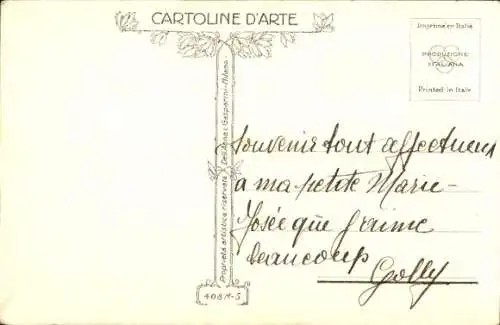 CARTOLINE D'ARTE
Imprimé en Italie
PRODUZIONE
ITALIANA
Printed in Italy
Proprietà artistica riservata Dell'Anna & Gasparini - Milano
408M-5
Souvenir tout affectueux
a ma petite Marie-
Josée que j'aime
beaucoup
Golly